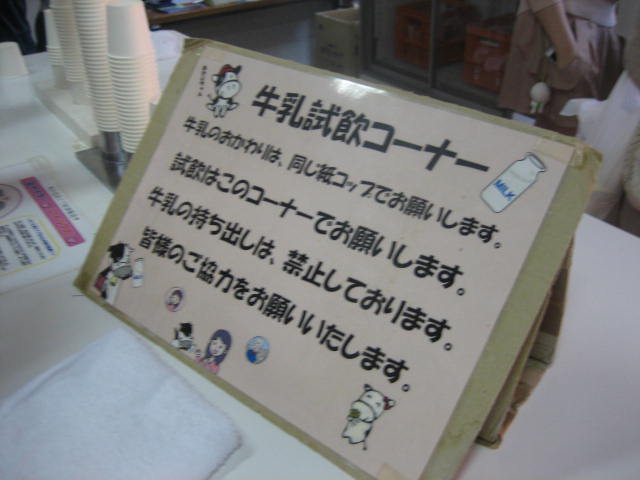 牛乳試飲コーナー
牛乳のおかわりは、同じ紙コップでお願いします。
試飲はこのコーナーでお願いします。
牛乳の持ち出しは、禁止しております。
皆様のご協力をお願いいたします。
MILK